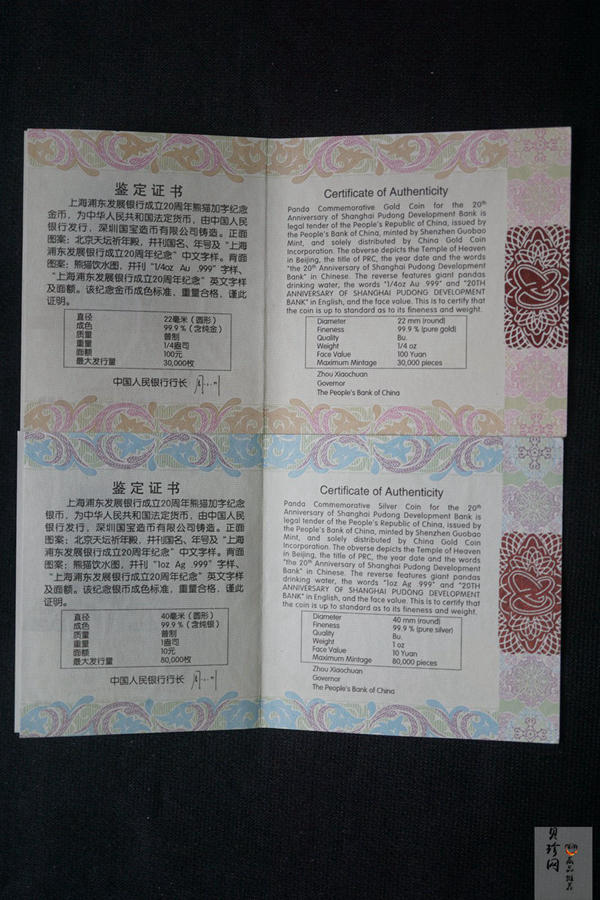 鉴定证书
上海浦东发展银行成立20周年熊猫加字纪念
金币，为中华人民共和国法定货币，由中国人民
银行发行，深圳国宝造币有限公司铸造。正面
图案：北京天坛祈年殿，并刊国名、年号及“上海
浦东发展银行成立20周年纪念”中文字样。背面
图案：熊猫饮水图，并刊“1/4oz Au .999”字样、
“上海浦东发展银行成立20周年纪念”英文字样
及面额。该纪念金币成色标准，重量合格，谨此
证明。
直径 22毫米（圆形）
成色 99.9％（含纯金）
质量 普制
重量 1/4盎司
面额 100元
最大发行量 30,000枚
中国人民银行行长
Certificate of Authenticity
Panda Commemorative Gold Coin for the 20th
Anniversary of Shanghai Pudong Development Bank is
legal tender of the People's Republic of China, issued by
the People's Bank of China, minted by Shenzhen Guobao
Mint, and solely distributed by China Gold Coin
Incorporation. The obverse depicts the Temple of Heaven
in Beijing, the title of PRC, the year date and the words
"the 20th Anniversary of Shanghai Pudong Development
Bank" in Chinese. The reverse features giant pandas
drinking water, the words "1/4oz Au .999" and "20TH
ANNIVERSARY OF SHANGHAI PUDONG DEVELOPMENT
BANK" in English, and the face value. This is to certify that
the coin is up to standard as to its fineness and weight.
Diameter 22 mm (round)
Fineness 99.9 % (pure gold)
Quality Bu.
Weight 1/4 oz
Face Value 100 Yuan
Maximum Mintage 30,000 pieces
Zhou Xiaochuan
Governor
The People's Bank of China
鉴定证书
上海浦东发展银行成立20周年熊猫加字纪念
银币，为中华人民共和国法定货币，由中国人民
银行发行，深圳国宝造币有限公司铸造。正面
图案：北京天坛祈年殿，并刊国名、年号及“上海
浦东发展银行成立20周年纪念”中文字样。背面
图案：熊猫饮水图，并刊“1oz Ag .999”字样、
“上海浦东发展银行成立20周年纪念”英文字样
及面额。该纪念银币成色标准，重量合格，谨此
证明。
直径 40毫米（圆形）
成色 99.9％（含纯银）
质量 普制
重量 1盎司
面额 10元
最大发行量 80,000枚
中国人民银行行长
Certificate of Authenticity
Panda Commemorative Silver Coin for the 20th
Anniversary of Shanghai Pudong Development Bank is
legal tender of the People's Republic of China, issued by
the People's Bank of China, minted by Shenzhen Guobao
Mint, and solely distributed by China Gold Coin
Incorporation. The obverse depicts the Temple of Heaven
in Beijing, the title of PRC, the year date and the words
"the 20th Anniversary of Shanghai Pudong Development
Bank" in Chinese. The reverse features giant pandas
drinking water, the words "1oz Ag .999" and "20TH
ANNIVERSARY OF SHANGHAI PUDONG DEVELOPMENT
BANK" in English, and the face value. This is to certify that
the coin is up to standard as to its fineness and weight.
Diameter 40 mm (round)
Fineness 99.9 % (pure silver)
Quality Bu.
Weight 1 oz
Face Value 10 Yuan
Maximum Mintage 80,000 pieces
Zhou Xiaochuan
Governor
The People's Bank of China
贝珍网